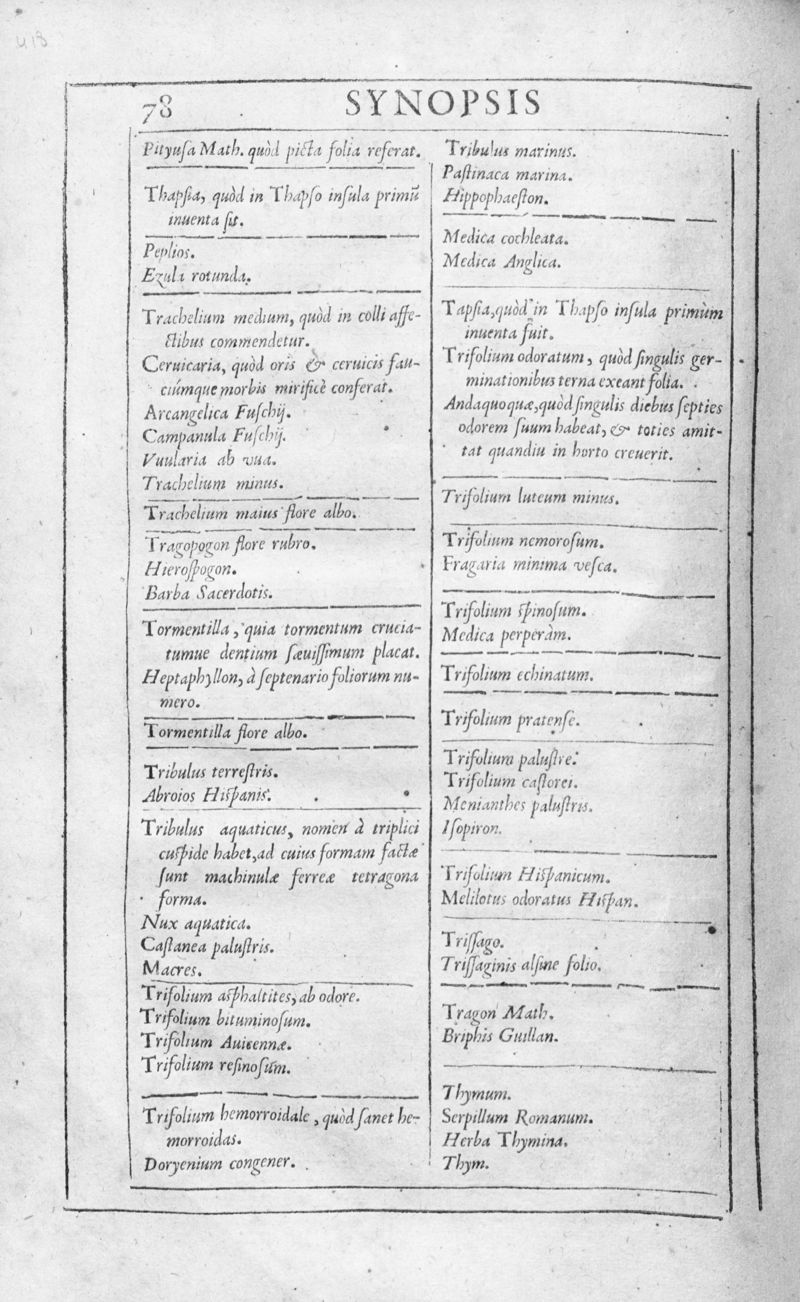 78
SYNOPSIS
Pityuſa Math. quòd picta folia referat.
Thapſia, quòd in Thapſo inſula primũ
inuenta ſit.
Peplios.
Ezula rotunda.
Trachelium medium, quòd in colli affe-
ctibus commendetur.
Ceruicaria, quòd oris & ceruicis fau-
ciúmque morbis mirificè conferat.
Arcangelica Fuſchij.
Campanula Fuſchij.
Vuularia ab vua.
Trachelium minus.
Trachelium maius flore albo.
Tragopogon flore rubro.
Hieroſpogon.
Barba Sacerdotis.
Tormentilla, quia tormentum crucia-
tumue dentium ſæuiſſimum placat.
Heptaphyllon, à ſeptenario foliorum nu-
mero.
Tormentilla flore albo.
Tribulus terreſtris.
Abroios Hiſpanis.
Tribulus aquaticus, nomen à triplici
cuſpide habet, ad cuius formam factæ
ſunt machinulæ ferreæ tetragona
forma.
Nux aquatica.
Caſtanea paluſtris.
Macres.
Trifolium aſphaltites, ab odore.
Trifolium bituminoſum.
Trifolium Auicennæ.
Trifolium reſinoſum.
Trifolium hemorroidale, quòd ſanet he-
morroidas.
Doryenium congener.
Tribulus marinus.
Paſtinaca marina.
Hippophaeſton.
Medica cochleata.
Medica Anglica.
Tapſia, quòd in Thapſo inſula primùm
inuenta fuit.
Trifolium odoratum, quòd ſingulis ger-
minationibus terna exeant folia.
Andaquoquæ, quòd ſingulis diebus ſepties
odorem ſuum habeat, & toties amit-
tat quandiu in horto creuerit.
Trifolium luteum minus.
Trifolium nemoroſum.
Fragaria minima veſca.
Trifolium ſpinoſum.
Medica perperàm.
Trifolium echinatum.
Trifolium pratenſe.
Trifolium paluſtre.
Trifolium caſtorei.
Menianthes paluſtris.
Iſopiron.
Trifolium Hiſpanicum.
Melilotus odoratus Hiſpan.
Triſſago.
Triſſaginis alſine folio.
Tragon Math.
Briphis Guillan.
Thymum.
Serpillum Romanum.
Herba Thymina.
Thym.